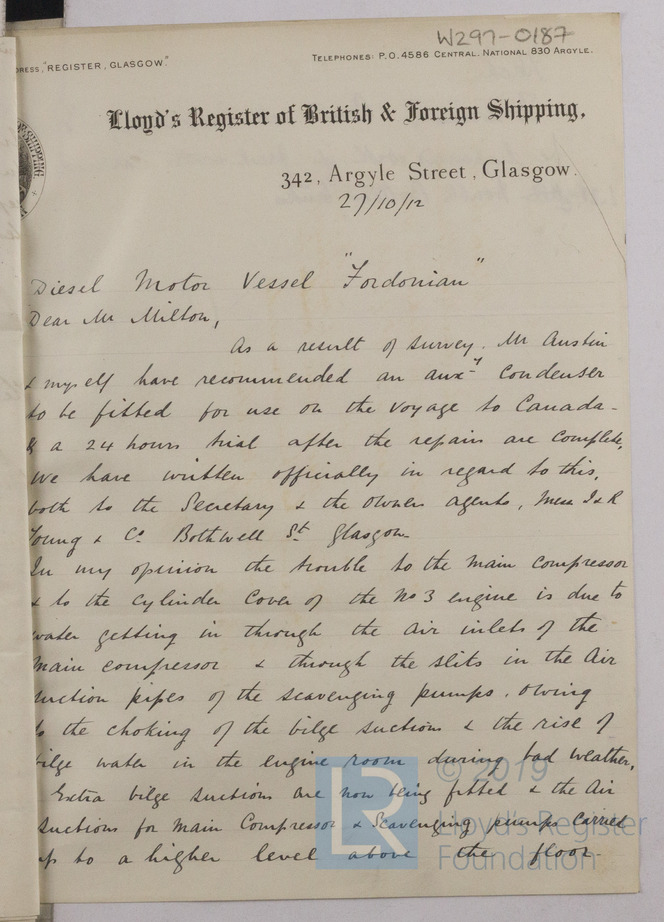 W297-0187
DRESS, "REGISTER, GLASGOW."
TELEPHONES: P.O. 4586 CENTRAL. NATIONAL 830 ARGYLE.
Lloyd's Register of British & Foreign Shipping,
342, Argyle Street, Glasgow.
27/10/12
Diesel Motor Vessel "Fordonian"
Dear Mr Milton,
As a result of survey. Mr Austin
& myself have recommended an auxy condenser
to be fitted for use on the voyage to Canada -
& a 24 hours trial after the repairs are complete,
We have written officially in regard to this,
both to the Secretary & the owners agents, Mess J & R
Young & Co Bothwell St Glasgow
In my opinion the trouble to the main compressor
& to the cylinder cover of the No 3 engine is due to
water getting in through the air inlets of the
main compressor & through the slits in the air
suction pipes of the scavenging pumps. owing
to the choking of the bilge suctions & the rise of
bilge water in the engine room during bad weather.
Extra bilge suctions are now being fitted & the air
suctions for main compressor & scavenging pumps carried
up to a higher level above the floor
© 2019
Lloyd's Register
Foundation
LR